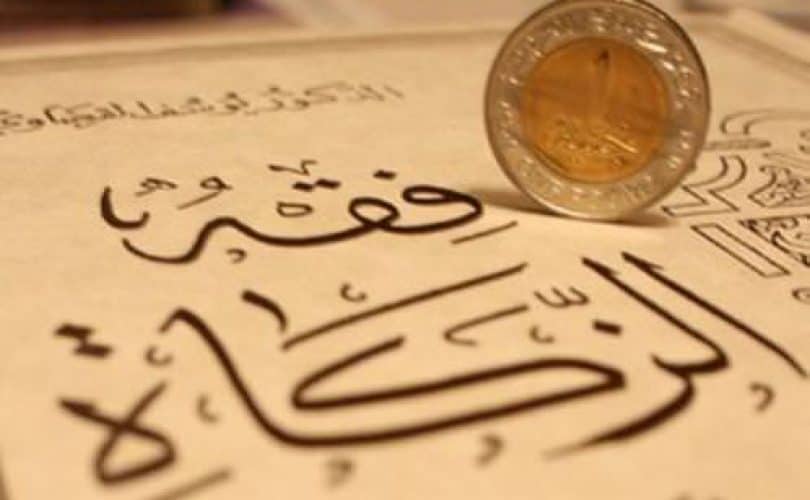 الدكتور يوسف القرضاوي
١
جنيه
فقه
الزكاة